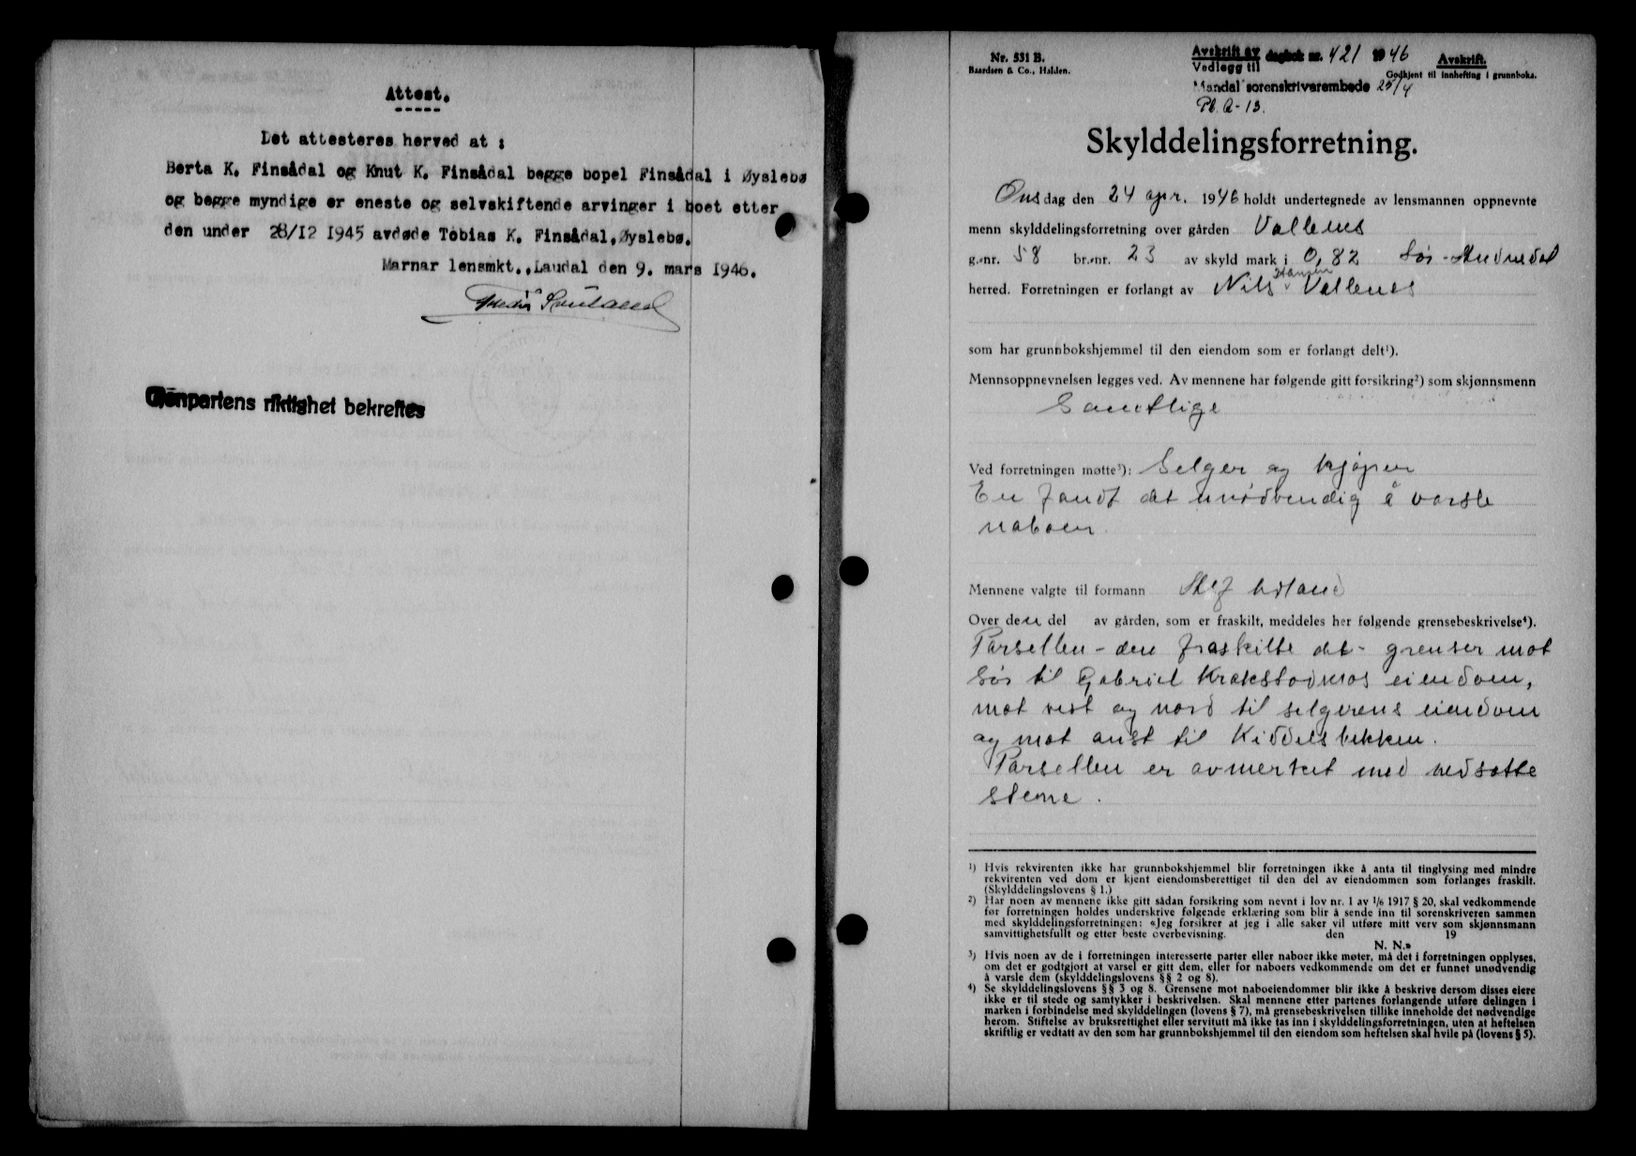 Attest.
Det attesteres herved at :
Berta K. Finsådal og Knut K. Finsådal begge bopel Finsådal i Øyslebø
og begge myndige er eneste og selvskiftende arvinger i boet etter
den under 28/12 1945 avdøde Tobias K. Finsådal, Øyslebø.
Marnar lensmkt., Laudal den 9. mars 1946.
Genpartens riktighet bekreftes
Nr. 531 B.
Baardsen & Co., Halden.
Avskrift av dagbok nr. 421 1946 Avskrift.
Vedlegg til
Godkjent til innhefting i grunnboka.
Mandal sorenskriverembede 25/4
Pb. A-13.
Skylddelingsforretning.
Onsdag den 24 apr. 1946 holdt undertegnede av lensmannen oppnevnte
menn skylddelingsforretning over gården Vallenes
g.-nr. 58 br.-nr. 23 av skyld mark i 0,82 Sør-Audnedal
herred. Forretningen er forlangt av Nils Hansen Vallenes
som har grunnbokshjemmel til den eiendom som er forlangt delt¹).
Mennsoppnevnelsen legges ved. Av mennene har følgende gitt forsikring²) som skjønnsmenn
Samtlige
Ved forretningen møtte³): Selger og kjøper
En fandt det unødvendig å varsle
naboer.
Mennene valgte til formann
Over den del av gården, som er fraskilt, meddeles her følgende grensebeskrivelse⁴).
Parsellen - den fraskilte del - grenser mot
Sør til Gabriel Krokstadmos eiendom,
mot vest og nord til selgerens eiendom
og mot aust til Kiddelsbekken.
Parsellen er avmerket med nedsatte
stene.
¹) Hvis rekvirenten ikke har grunnbokshjemmel blir forretningen ikke å anta til tinglysing med mindre
rekvirenten ved dom er kjent eiendomsberettiget til den del av eiendommen som forlanges fraskilt.
(Skylddelingslovens § 1.)
²) Har noen av mennene ikke gitt sådan forsikring som nevnt i lov nr. 1 av 1/6 1917 § 20, skal vedkommende
før forretningen holdes underskrive følgende erklæring som blir å sende inn til sorenskriveren sammen
med skylddelingsforretningen: «Jeg forsikrer at jeg i alle saker vil utføre mitt verv som skjønnsmann
samvittighetsfullt og etter beste overbevisning. den 19
N. N.»
³) Hvis noen av de i forretningen interesserte parter eller naboer ikke møter, må det i forretningen opplyses,
om det er godtgjort at varsel er gitt dem, eller for naboers vedkommende om det er funnet unødvendig
å varsle dem (skylddelingslovens §§ 2 og 8).
⁴) Se skylddelingslovens §§ 3 og 8. Grensene mot naboeiendommer blir ikke å beskrive dersom disses eiere
ikke er til stede og samtykker i beskrivelsen. Skal mennene etter partenes forlangende utføre delingen i
marken i forbindelse med skylddelingen (lovens § 7), må grensebeskrivelsen tillike inneholde det nødvendige
herom. Stiftelse av bruksrettighet eller servitutt må ikke tas inn i skylddelingsforretningen, uten at heftelsen
skriftlig er vedtatt av den som har grunnbokshjemmel til den eiendom som heftelsen skal hvile på (lovens § 5).